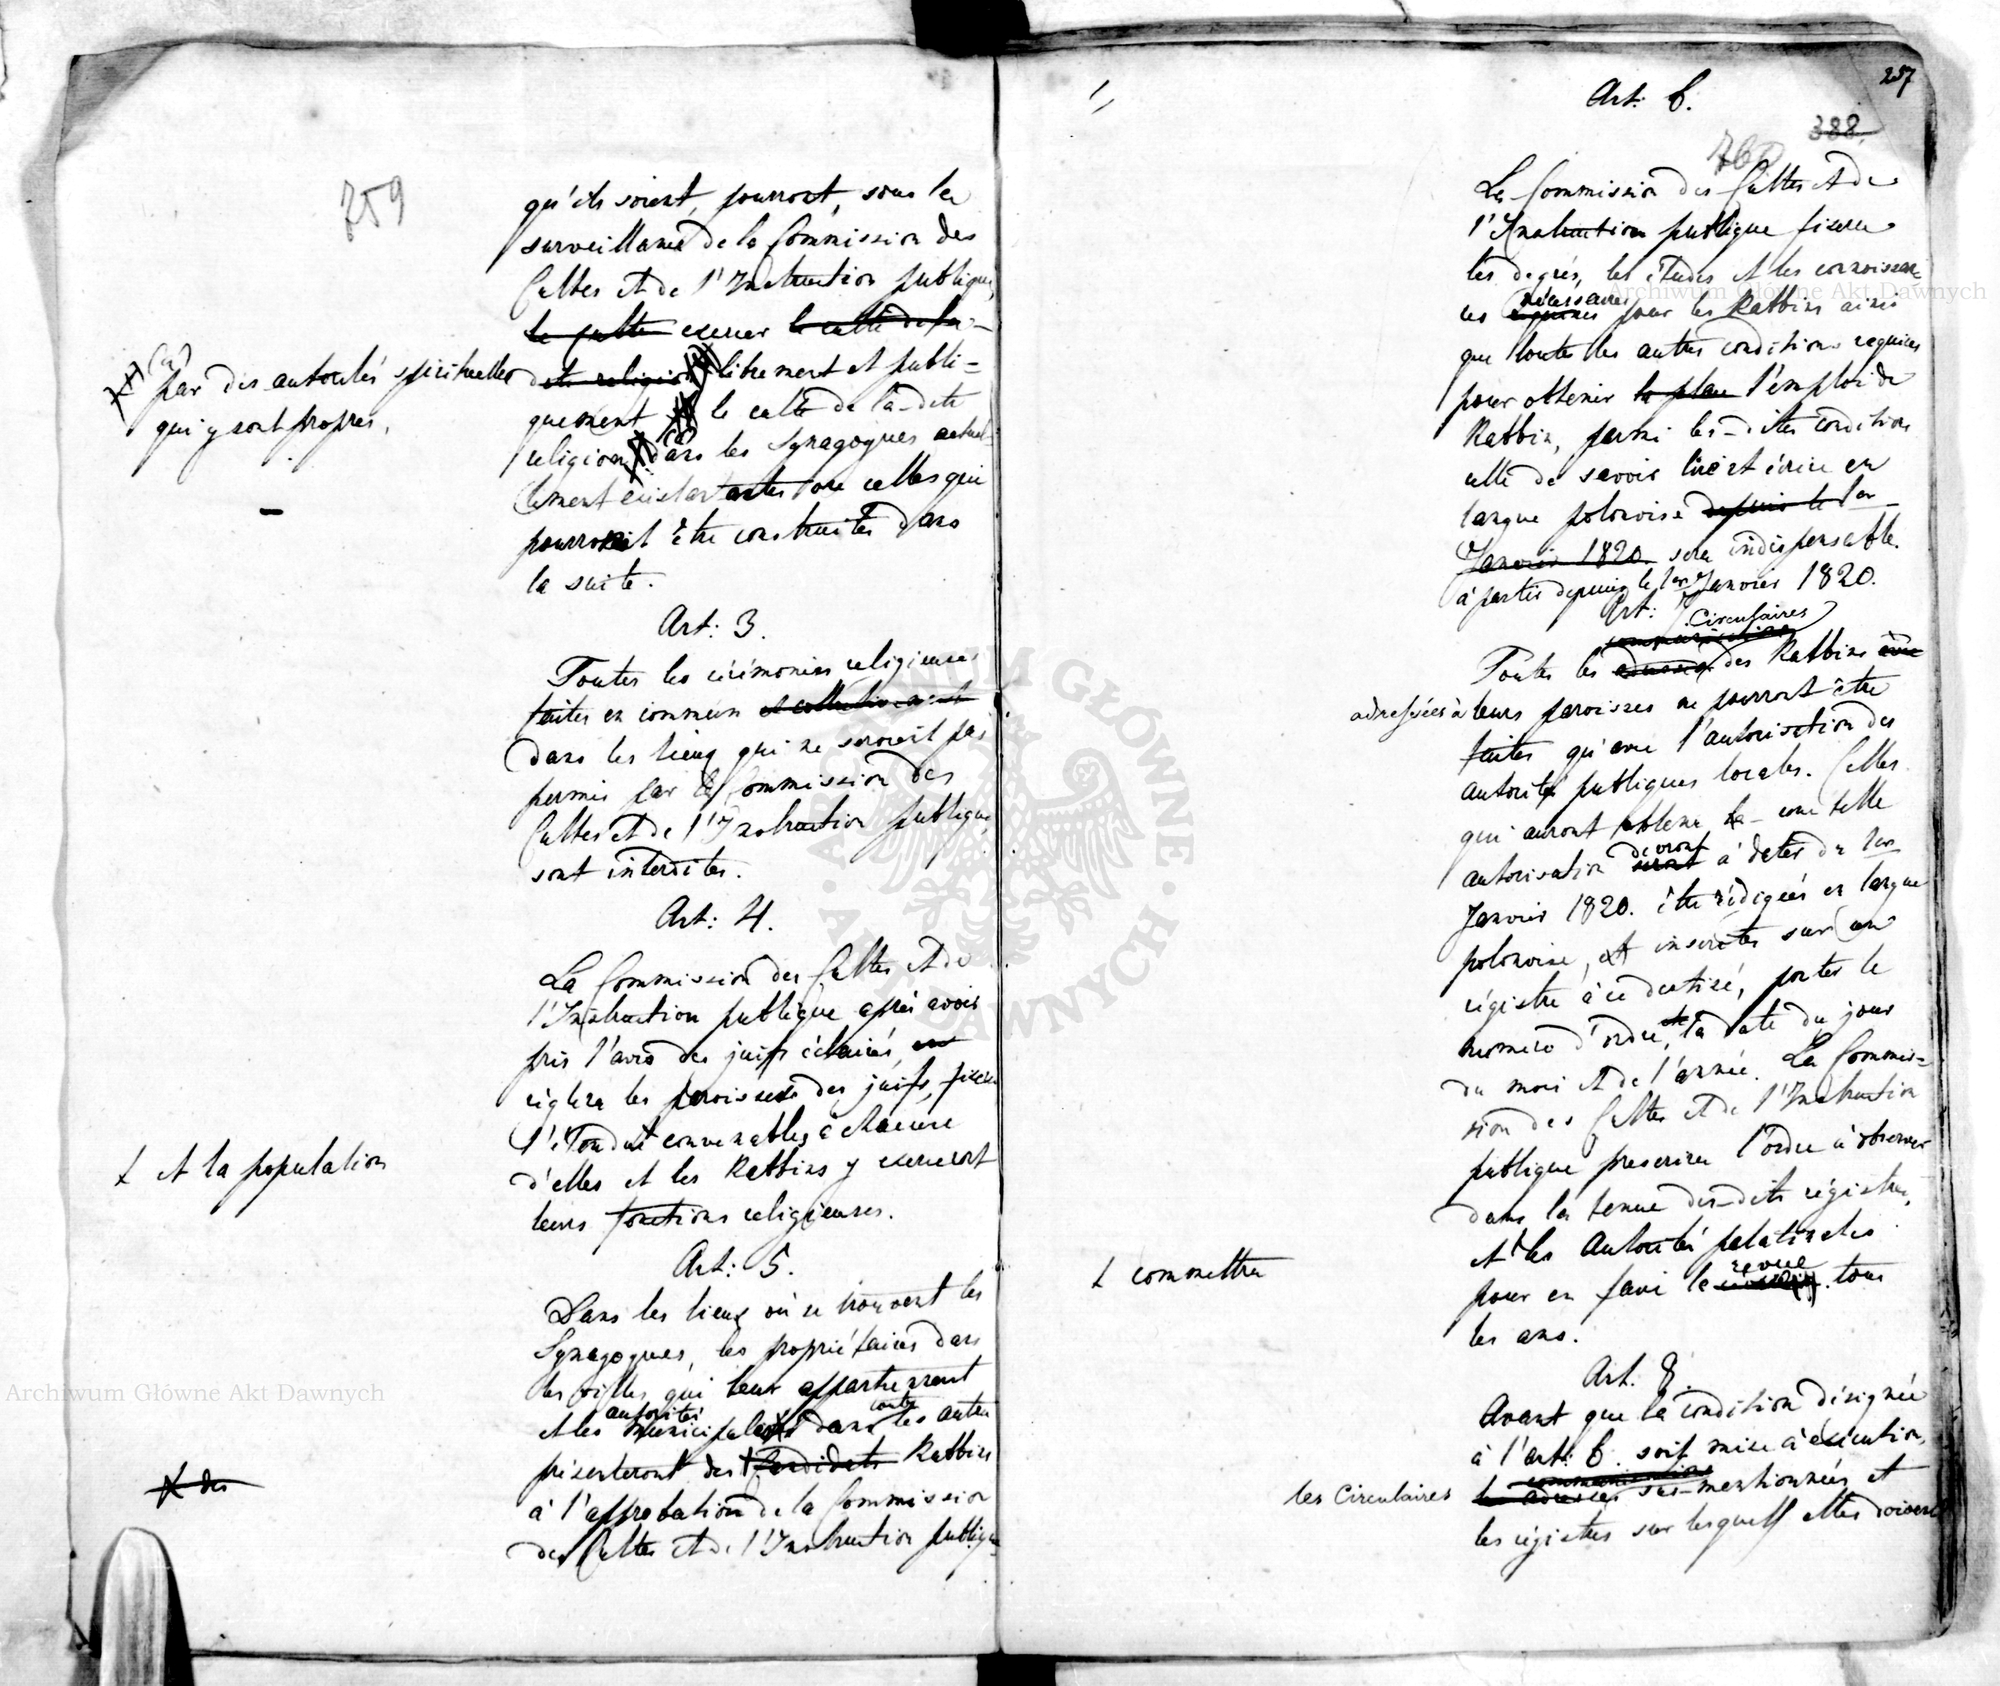 759
qu'ils soient, pourront, sous la
surveillance de la Commission des
Cultes et de l'Instruction publique,
le culte exercer le culte de la-
dite religion librement et publi=
quement le culte de la-dite
religion (a) dans les Synagogues actuel-
lement existantes ou celles qui
pourroient être construites dans
la suite.
(a)
par des autorités spirituelles
qui y sont propres.
Art: 3.
Toutes les cérémonies religieuses
faites en commun et collectivement
dans les lieux qui ne seroient pas
permis par la Commission des
Cultes et de l'Instruction publique,
sont interdites.
Art: 4.
La Commission des Cultes et de
l'Instruction publique après avoir
pris l'avis des juifs éclairés,
réglera les paroisses des juifs, fixera
l'étendue convenables à chacune
d'elles et les Rabbins y exerceront
leurs fonctions religieuses.
+ et la population
Art: 5.
Dans les lieux où se trouvent les
Synagogues, les propriétaires dans
les villes qui leur appartiennent
autorités toutes
et les municipales dans les autres
présenteront des Candidats Rabbins
à l'approbation de la Commission
des Cultes et de l'Instruction publique
des
257
388
760
Art: 6.
La Commission des Cultes et de
l'Instruction publique fixera
les degrés, les études et les connoissan=
nécessaires
ces requises pour les Rabbins ainsi
que toutes les autres conditions requises
pour obtenir la place l'emploi de
Rabbin, parmi les-dites conditions
celle de savoir lire et écrire en
langue polonoise depuis le 1er
Janvier 1820. sera indispensable.
à partir depuis le 1er Janvier 1820.
Art: 7.
Circulaires
Toutes les adresses des Rabbins
adressées à leurs paroisses ne pourront être
faites qu'avec l'autorisation des
autorités publiques locales. Celles
qui auront obtenu la- une telle
devront
autorisation seront à dater du 1er
Janvier 1820. être rédigées en langue
polonoise, et inscrites sur un
régistre à ce destiné, porter le
numéro d'ordre, et la date du jour
du mois et de l'année. La Commis=
sion des Cultes et de l'Instruction
publique prescrira l'ordre à observer
dans la tenue des-dits régistres,
et les Autorités palatinales
revue
pour en faire la tous
les ans.
+ commettra
Art: 8.
Avant que la condition désignée
à l'art: 6. soit mise à exécution,
communications
les Circulaires les adresses sus-mentionnées et
les régistres sur lesquels elles doivent
Archiwum Główne Akt Dawnych
Archiwum Główne Akt Dawnych
ARCHIWUM GŁÓWNE · AKT DAWNYCH ·